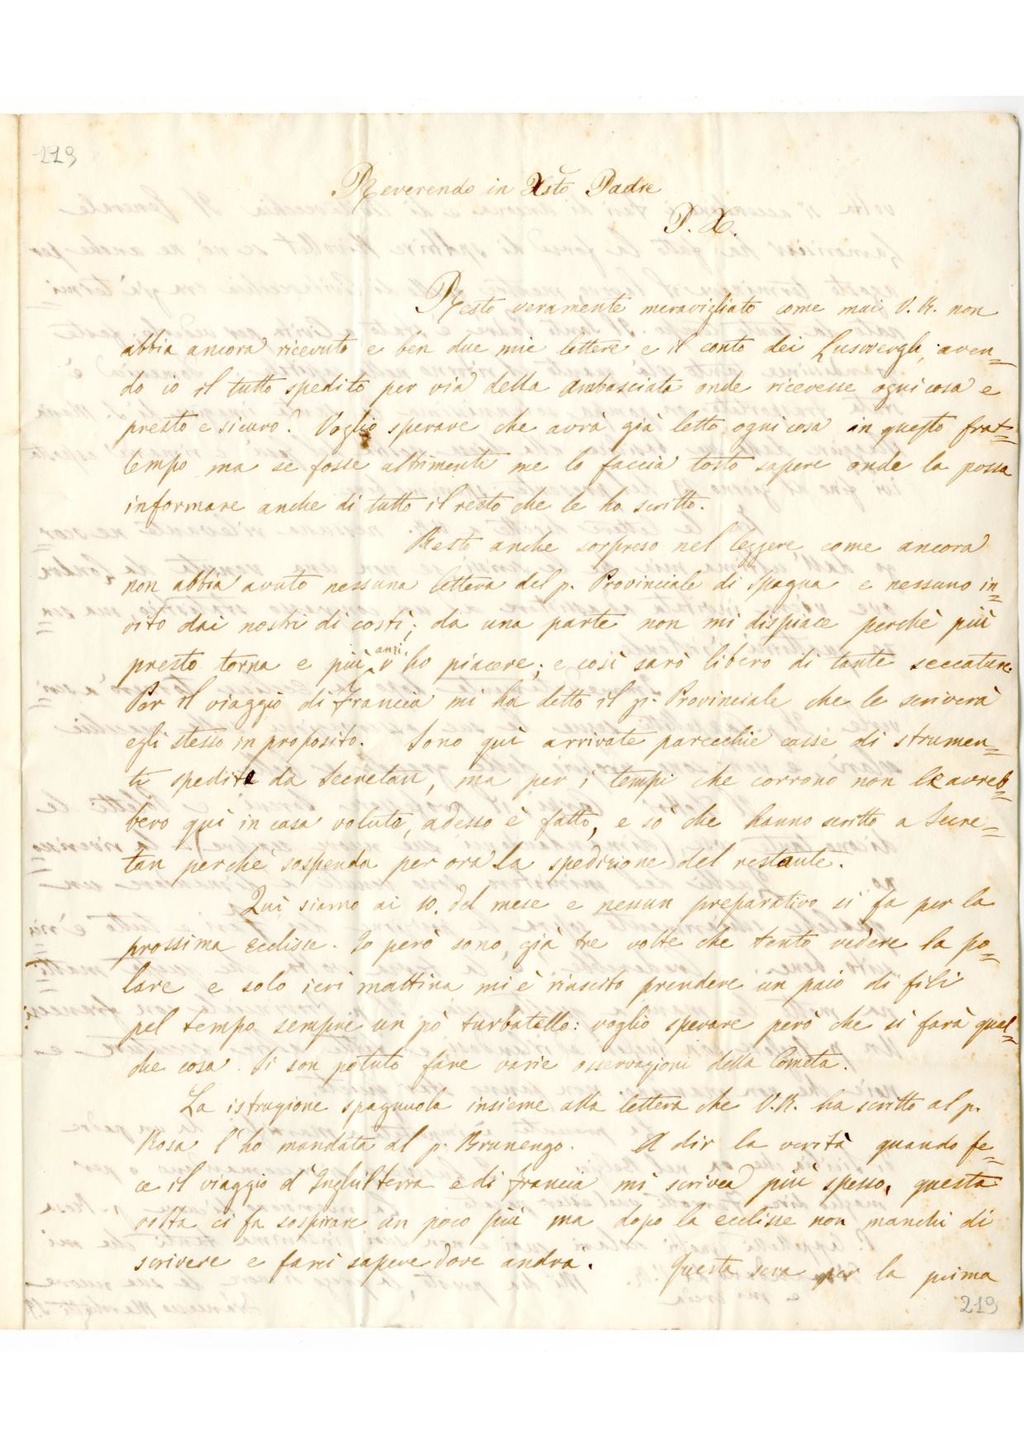 219
Reverendo in Xsto Padre
P. X.
Resto veramente meravigliato come mai V. R. non
abbia ancora ricevuto e ben due mie lettere e il conto dei Lusvergh, aven=
do io il tutto spedito per via della Ambasciata onde ricevesse ogni cosa e
presto e sicuro. Voglio sperare che avrà già letto ogni cosa in questo frat=
tempo ma se fosse altrimenti me lo faccia tosto sapere onde la possa
informare anche di tutto il resto che le ho scritto.
Resto anche sorpreso nel leggere come ancora
non abbia avuto nessuna lettera del p. Provinciale di Spagna e nessuno in=
vito dai nostri di costì; da una parte non mi dispiace perchè più
presto torna e più anzi v' ho piacere; e così sarò libero di tante seccature.
Per il viaggio di Francia mi ha detto il p. Provinciale che le scriverà
egli stesso in proposito. Sono quì arrivate parecchie casse di strumen=
ti spedite da Secretan, ma per i tempi che corrono non le avreb=
bero quì in casa volute, adesso è fatto, e sò che hanno scritto a Secre=
tan perchè sospenda per ora la spedizione del restante.
Quì siamo ai 10. del mese e nessun preparativo si fa per la
prossima ecclisse. Io però sono già tre volte che tento vedere la po=
lare e solo ieri mattina mi è riuscito prendere un paio di fili
pel tempo sempre un pò turbatello: voglio sperare però che si farà qual=
che cosa. Si son potute fare varie osservazioni della Cometa.
La istruzione spagnuola insieme alla lettera che V. R. ha scritto al p.
Rosa l'ho mandata al p. Brunengo. A dir la verità quando fe=
ce il viaggio d'Inghilterra e di Francia mi scrivea più spesso, questa
volta ci fa sospirare un poco più ma dopo la ecclisse non manchi di
scrivere e farci sapere dove andrà. Questa sera per la prima
219